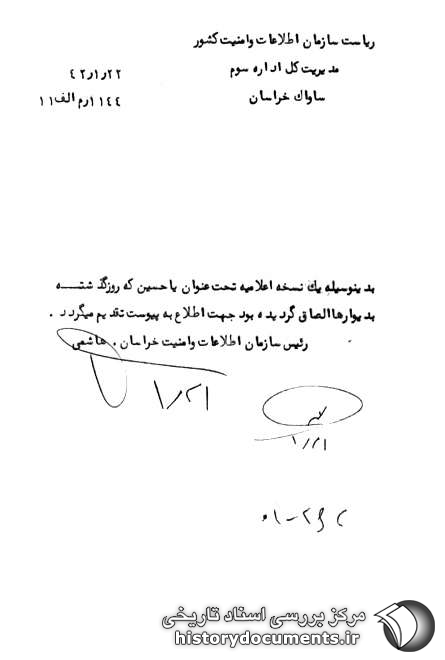 ریاست سازمان اطلاعات وامنیت کشور
مدیریت کل اداره سوم
۴۲٫۱٫۲۲
ساواك خراسان
۱۱۴۴رم الف۱۱
بدینوسیله یك نسخه اعلامیه تحت عنوان یاحسین که روزگذشته
بدیوارها الصاق گردیده بود جهت اطلاع به پیوست تقدیم میگردد .
رئیس سازمان اطلاعات وامنیت خراسان . هاشمی
۱٫۲۱
۱٫۲۱
مرکز بررسی اسناد تاریخی
historydocuments.ir